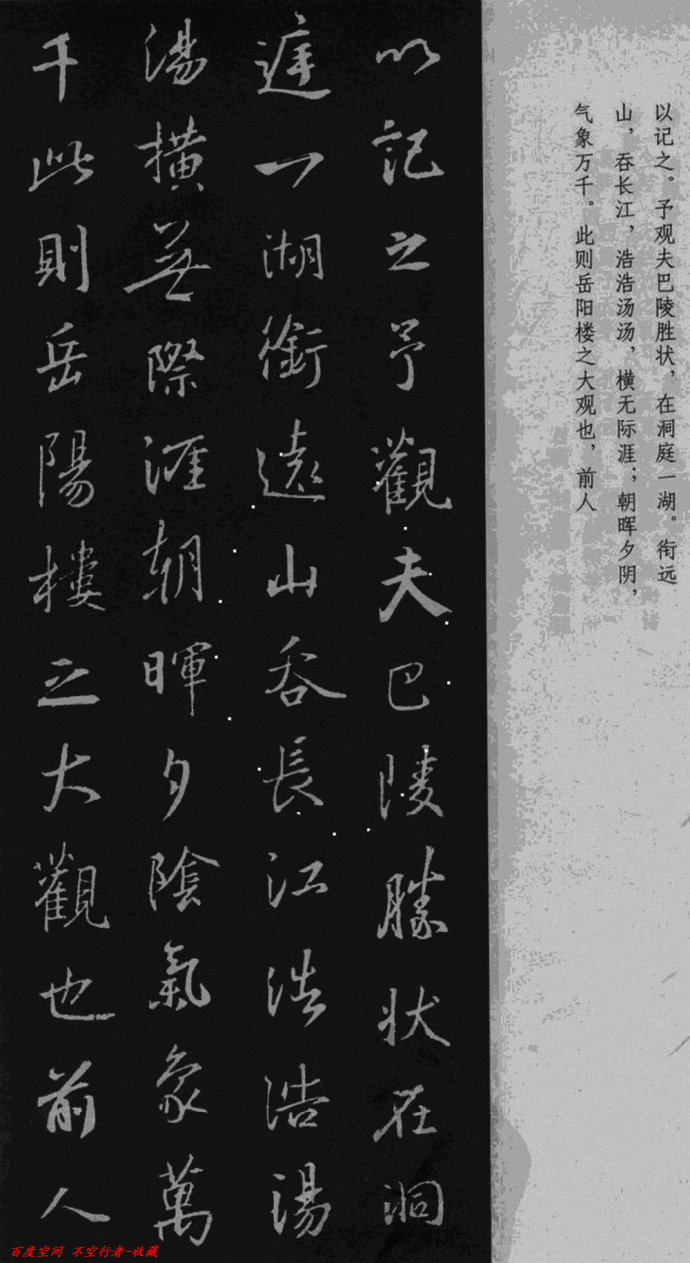 以记之。予观夫巴陵胜状，在洞庭一湖。衔远
山，吞长江，浩浩汤汤，横无际涯；朝晖夕阴，
气象万千。此则岳阳楼之大观也，前人
以記之予觀夫巴陵勝状在洞
庭一湖銜遠山吞長江浩浩湯
湯橫無際涯朝暉夕陰氣象萬
千此則岳陽樓之大觀也前人
百度空间 不空行者-收藏